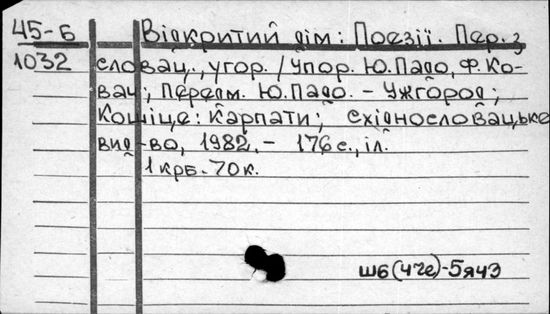 45-Б Відкритий дім: Поезії. Пер. з
1032 словац., угор. / Упор. Ю. Падо, Ф. Ко-
вач; Передм. Ю. Падо. - Ужгород;
Кошіце: Карпати; Східнословацьке
вид-во, 1982. - 176 с., іл.
1 крб. 70 к.
Ш6(4Че)-5я43